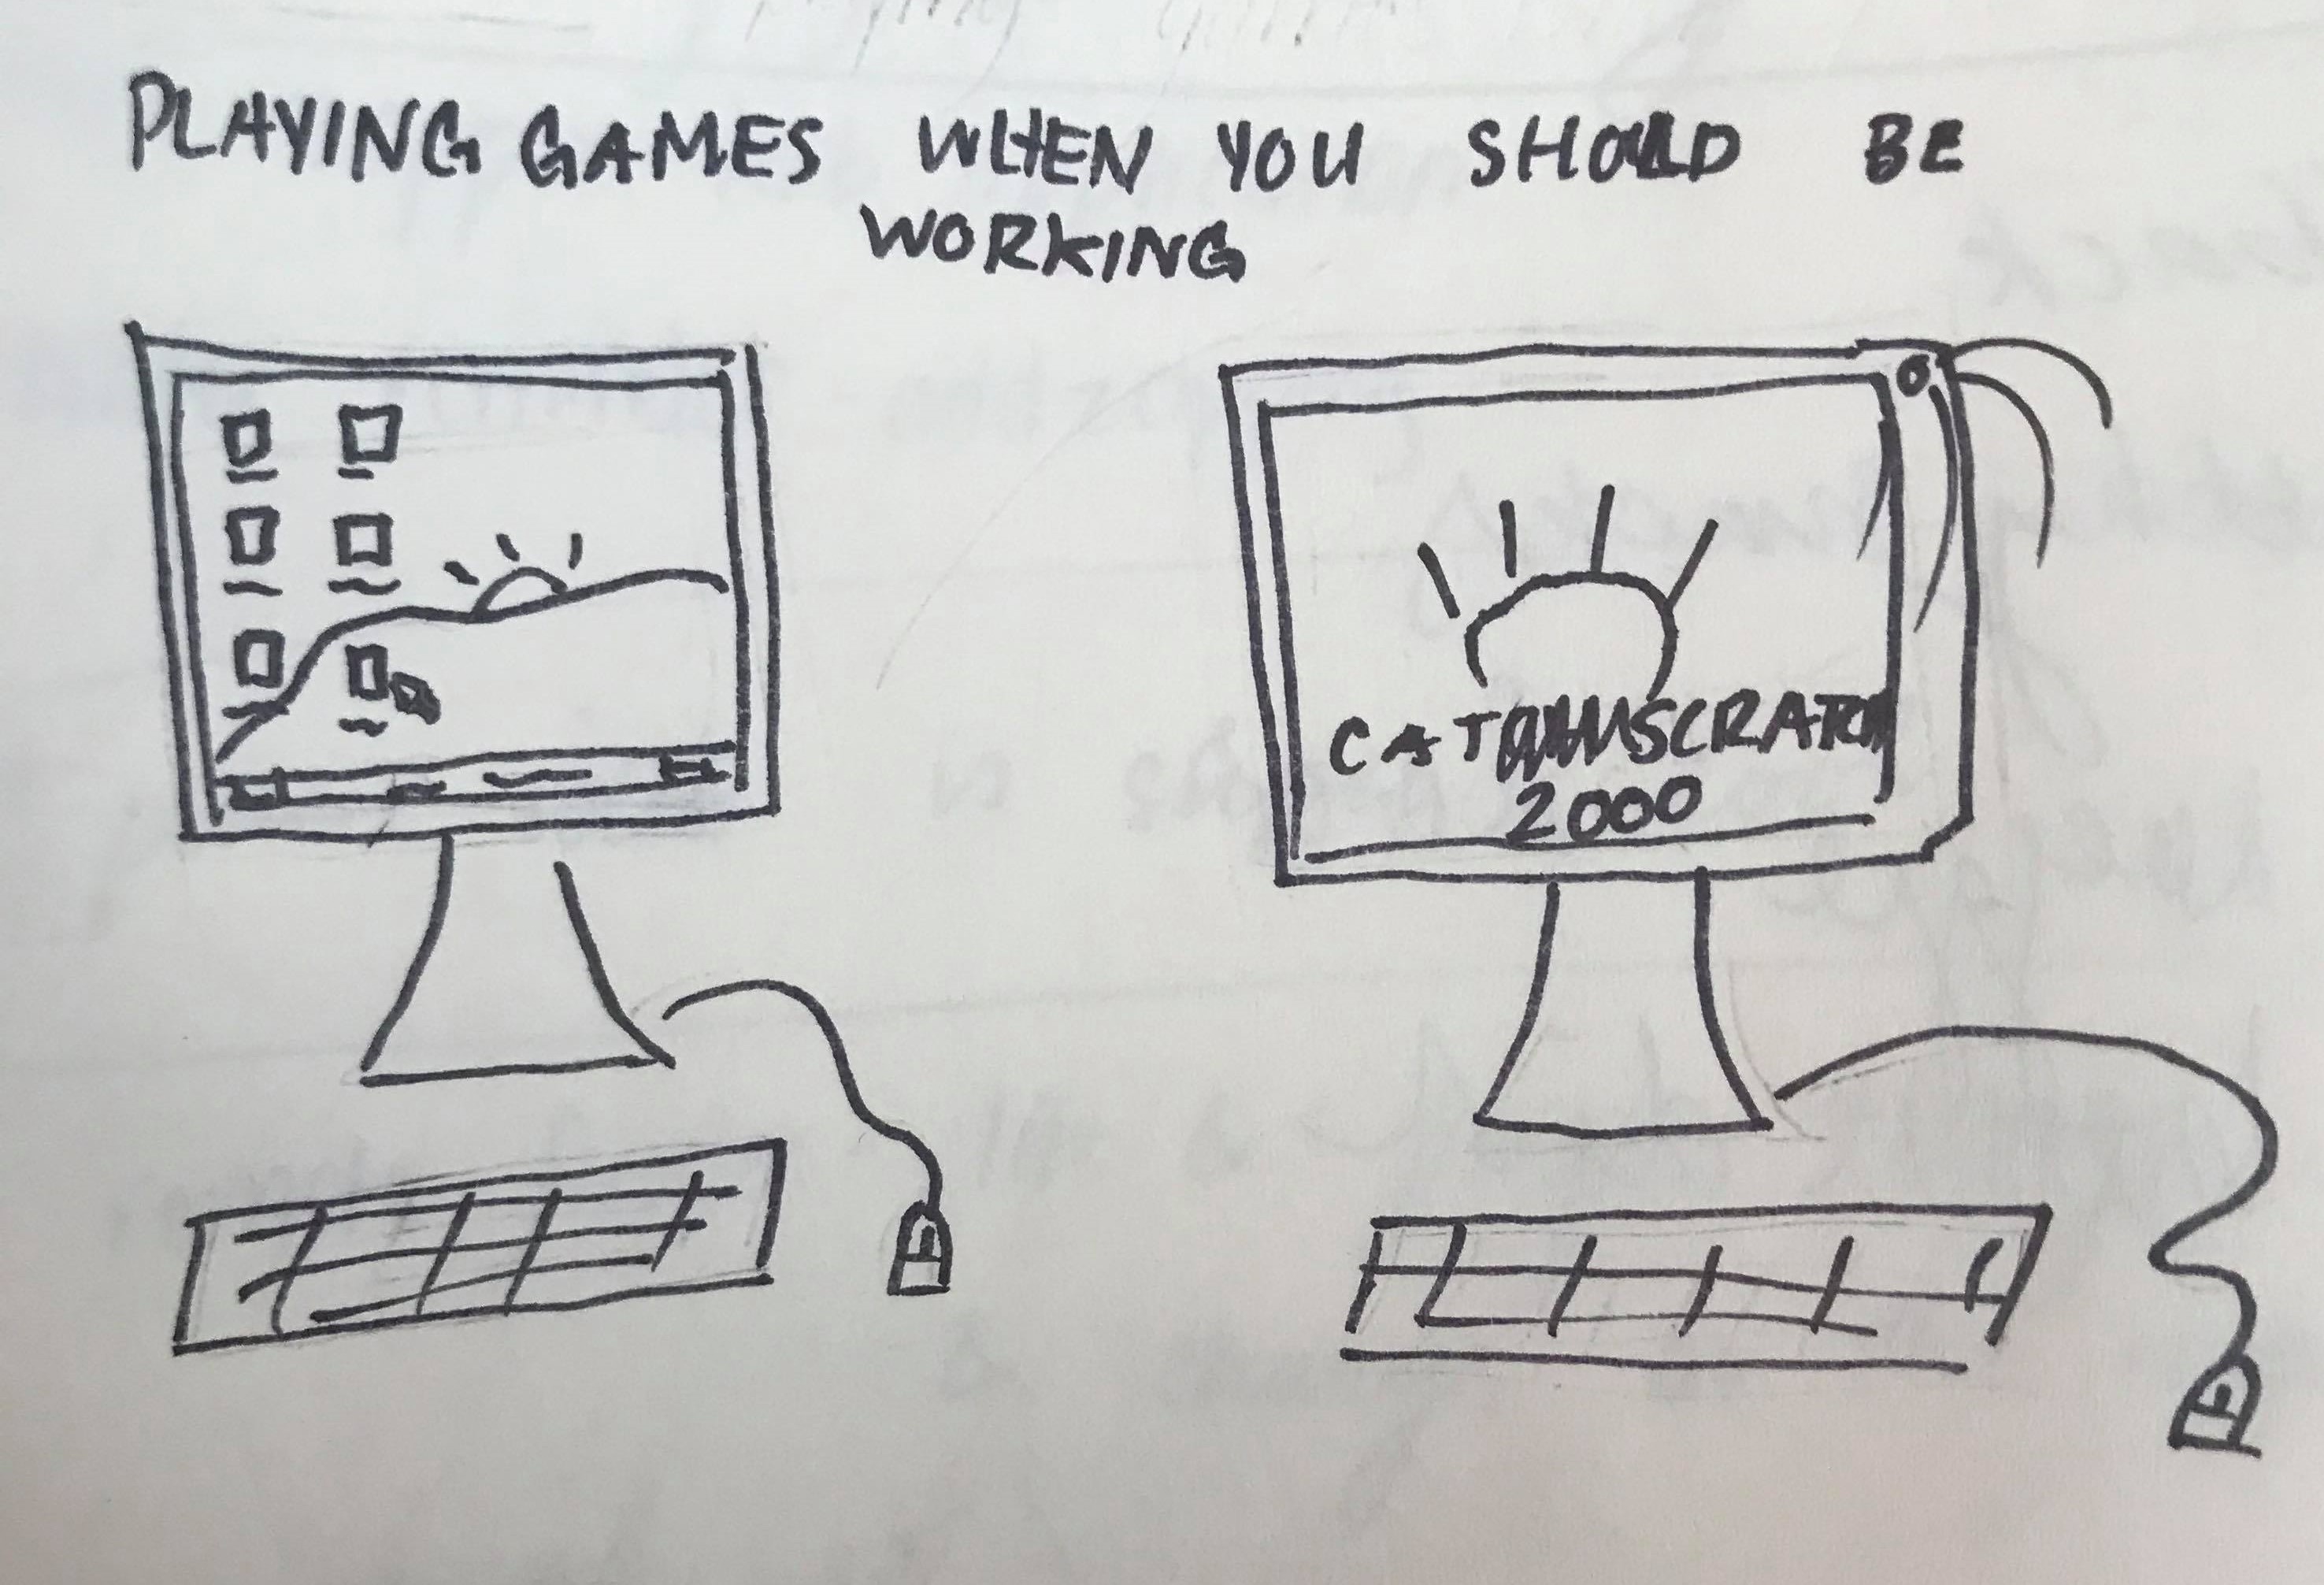 PLAYING GAMES WHEN YOU SHOULD BE
WORKING
CAT SCRATCH
2000